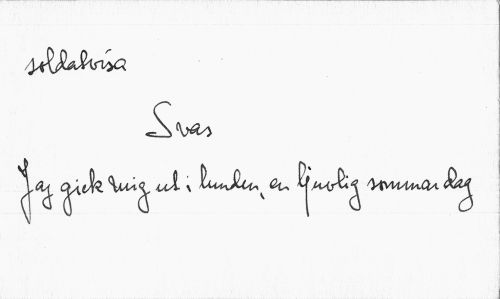 soldatvisa
Svas
Jag gick mig ut i lunden, en ljuvlig sommardag